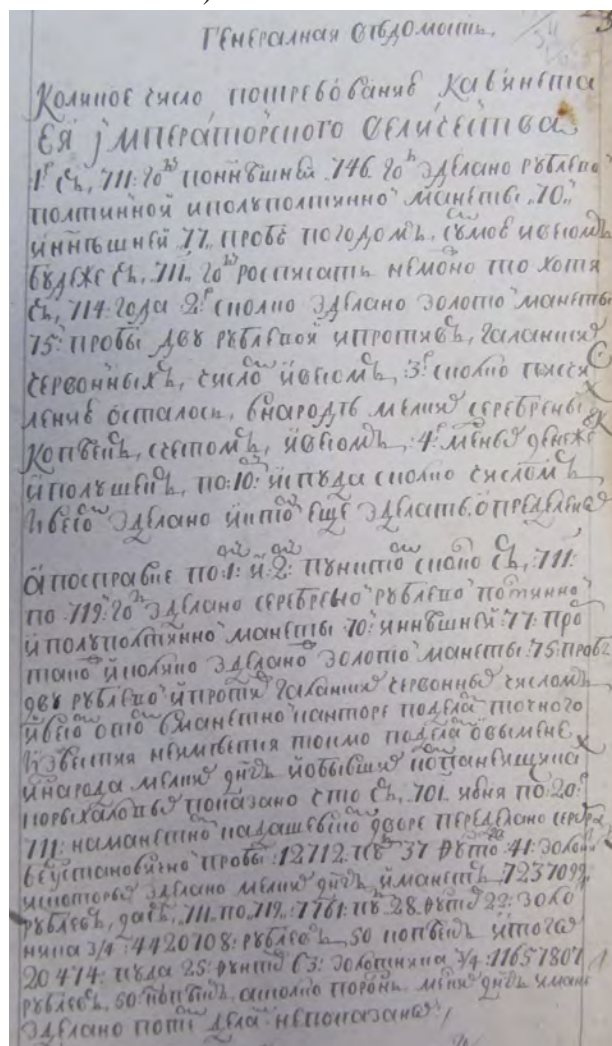 Генералная ведомость
Коликое число потребование кабинета
Ея імператорского величества
1е съ, 711: го по ннешней 746 го зделано рублево
полтинной и полуполтинно манеты 70
и ннешней 77 пробе по годомъ, сумою и весомъ
будеже съ, 711 го росписать немоно то хотя
съ, 714: года 2е сколко зделано золото манеты
75: пробы двурублевой и противъ, галанския
червонныхъ, число и весомъ, 3е сколко
ление осталось, в народе мелких серебрены
копеекъ, счетомъ, и весомъ, 4е денеже
и полушекъ, по: 10: ис пуда сколко числомъ
и весо зделано и что еще зделать определено
а по справке по: 1: и: 2: пункто ско съ, 711:
по 719 го зделано серебрено рублево полтинно
и полуполтинно манеты 70: и ннешней 77: про
тако и колико зделано золото манеты 75: проб
двурублево и проти галанских червонных числомъ
и весо о то в манетно канторе по дела точного
известия не имеетца токмо по дела о вымене
у народа мелких днгъ
показано что съ, 701 июня по 20е
711: на манетно кадашевско дворе переделано серебра
пробы: 12712: пу 37 фунто 41: золотн
ис которых зделано мелких днгъ и манетъ 7237092
рублевъ, да съ, 711 по 719: 7761: пу 28 фунта 22: золо
ника 3/4: 4420708: рублевъ 50 копеекъ итого
20474: пуда 25: фунтов 63: золотника 3/4: 11657801
рублевъ, 50: копеекъ, а колико порознь мелких днгъ и мане
зделано по те дела не показано